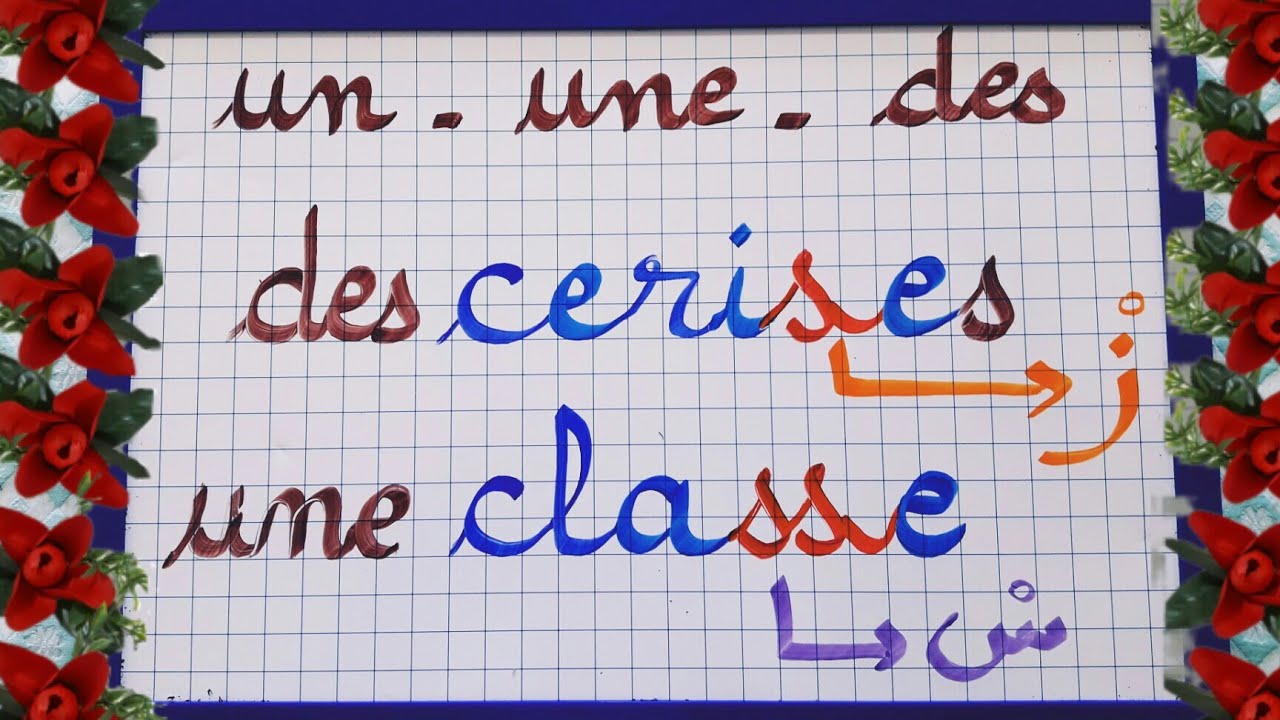 un . une . des
des cerises
زْ
une classe
سْ